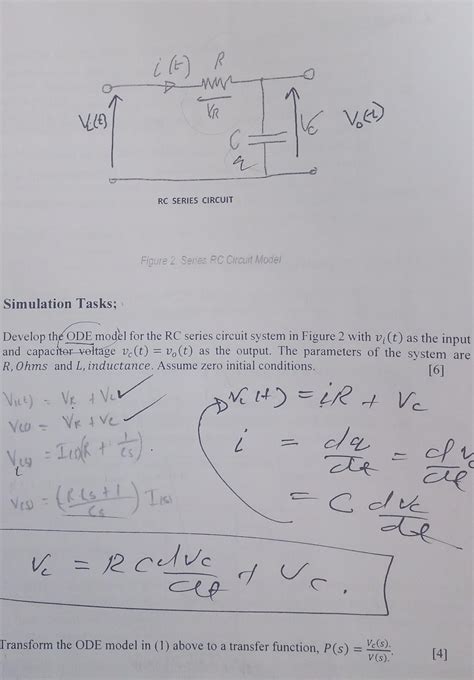 i(t) R
V_R
V_i(t)
C
q
V_C
V_o(t)
RC SERIES CIRCUIT
Figure 2. Series RC Circuit Model
Simulation Tasks;
Develop the ODE model for the RC series circuit system in Figure 2 with v_i(t) as the input
and capacitor voltage v_c(t) = v_o(t) as the output. The parameters of the system are
R, Ohms and L, inductance. Assume zero initial conditions. [6]
V_i(t) = V_R + V_C
= V_R + V_C
= I(s)(R + 1/Cs).
V(s) = (RCs + 1 / Cs) I(s)
V_i(t) = iR + V_C
i = dq/dt =
= C dv_c/dt
V_i = RC dV_c/dt + V_c.
Transform the ODE model in (1) above to a transfer function, P(s) = V_c(s)/V(s). [4]